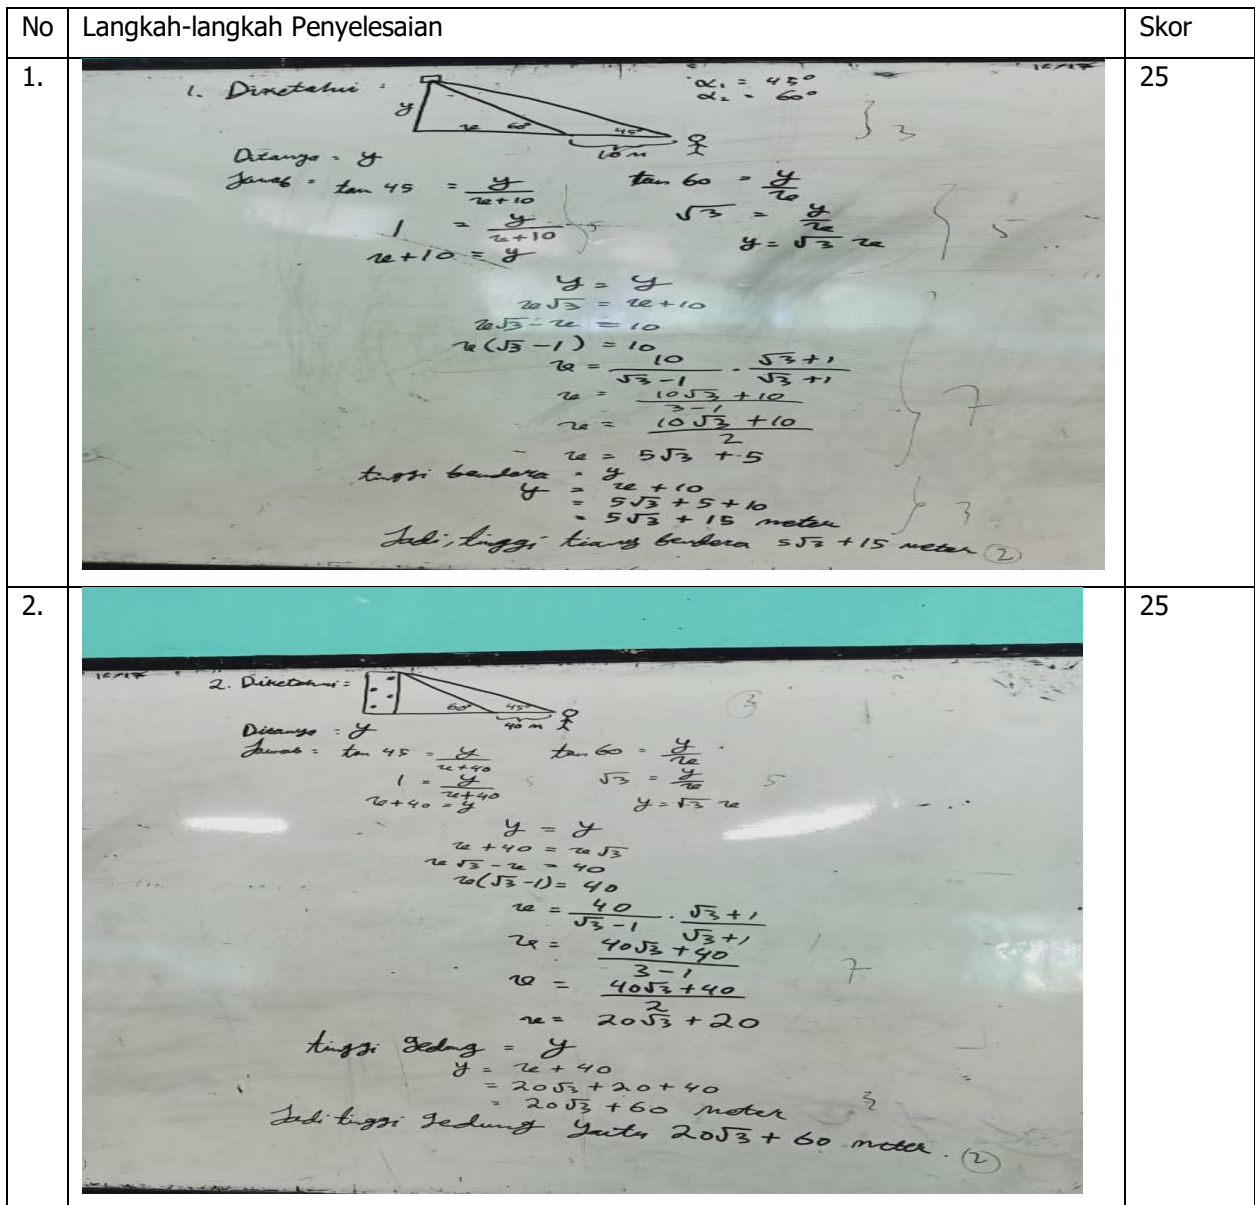 No Langkah-langkah Penyelesaian Skor
1. 25
1. Diketahui :
α₁ = 45°
α₂ = 60°
y x 60° 45°
10 m
} 3
Ditanya = y
Jawab = tan 45 = y/(x+10) tan 60 = y/x
1 = y/(x+10) } 5 √3 = y/x } 5
x+10 = y y = √3 x
y = y
x√3 = x+10
x√3 - x = 10
x(√3 - 1) = 10
x = 10/(√3-1) . (√3+1)/(√3+1)
x = (10√3 + 10)/(3-1) } 7
x = (10√3 + 10)/2
x = 5√3 + 5
tinggi bendera = y
y = x + 10
= 5√3 + 5 + 10 } 3
= 5√3 + 15 meter
Jadi, tinggi tiang bendera 5√3 + 15 meter (2)
2. 25
2. Diketahui =
60° 45°
40 m
(3)
Ditanya : y
Jawab = tan 45 = y/(x+40) tan 60 = y/x
1 = y/(x+40) 5 √3 = y/x 5
x+40 = y y = √3 x
y = y
x + 40 = x√3
x√3 - x = 40
x(√3-1) = 40
x = 40/(√3-1) . (√3+1)/(√3+1)
x = (40√3 + 40)/(3-1) 7
x = (40√3 + 40)/2
x = 20√3 + 20
tinggi gedung = y
y = x + 40
= 20√3 + 20 + 40
= 20√3 + 60 meter 3
Jadi tinggi gedung yaitu 20√3 + 60 meter. (2)